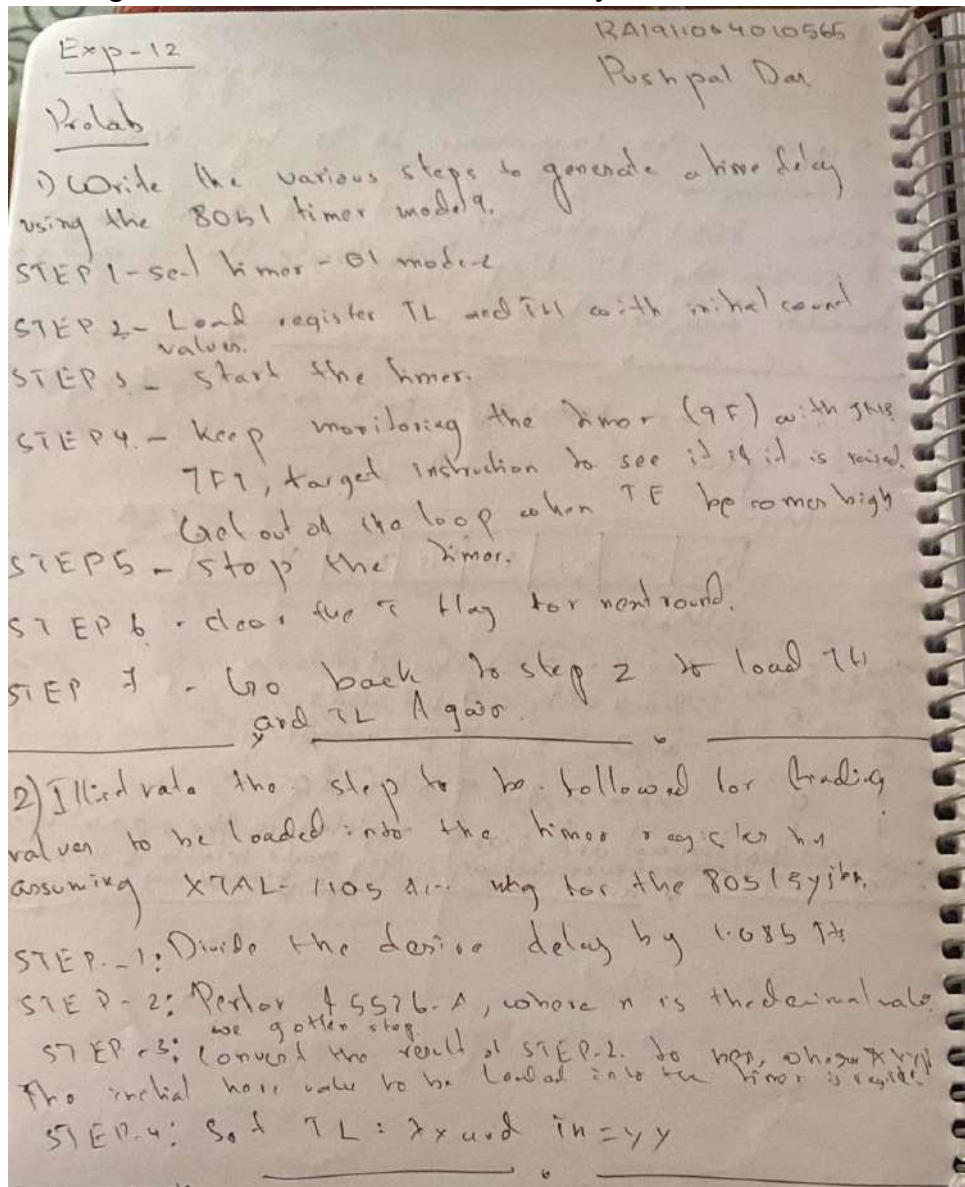 Exp-12
RA1911004010565
Pushpal Das
Prelab
1) Write the various steps to generate a time delay
using the 8051 timer
STEP 1 - set timer - 01 mode
STEP 2 - Load register TL and TH with initial count
values.
STEP 3 - Start the timer.
STEP 4 - Keep monitoring the timer with
target instruction to see if it is raised.
Get out of the loop when becomes high
STEP 5 - Stop the timer.
STEP 6 - clear flag for next round.
STEP 7 - Go back to step 2 to load TH
and TL Again.
2) the step to be followed for finding
values to be loaded into the timer
assuming XTAL- for the 8051
STEP-1: Divide the desire delay by 1.085
STEP-2: where n is the decimal
we gotten step
STEP-3: Convert the result of STEP-2. to
The value to be into the timer
STEP-4: Set TL = and = yy